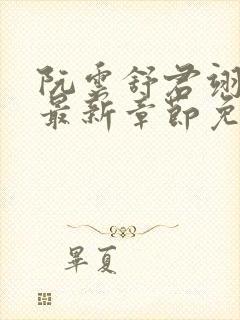 阮雲舒君翊
最新章節免
畢夏